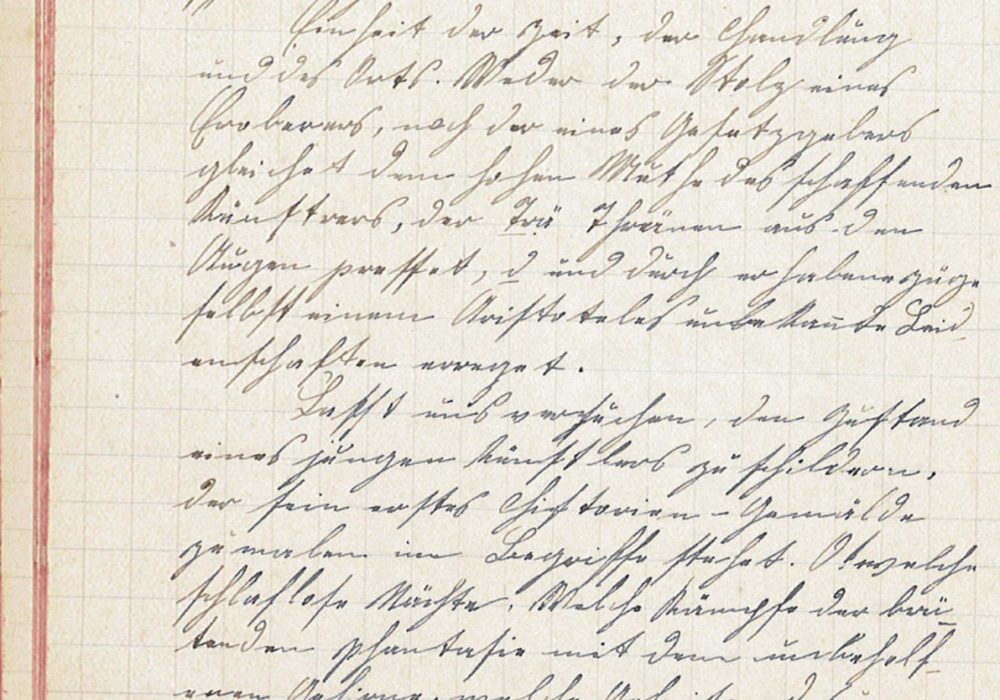 Einheit der Zeit, der Handlung
und des Orts. Weder der Stolz eines
Eroberers, noch der eines Gesetzgebers
gleichet dem hohen Muthe des schaffenden
Künstrers, der Trä Thränen aus den
Augen presset, d und durch erhabene Züge
selbst einem Aristoteles unbekannte Leid
enschaften erreget.
Lasst uns versuchen, den Zustand
eines jungen Künstlers zu schildern,
der sein erstes Historien-Gemälde
zu malen im Begriffe stehet. O! welche
schlaflose Nächte, Welche Kämpfe der brü-
tenden Phantasie mit dem unbeholf-
enen welche